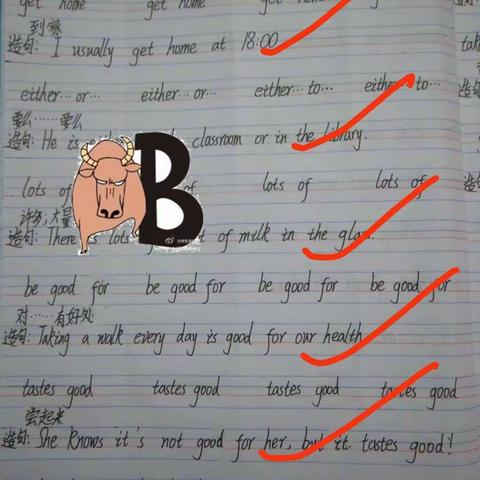 get home get home get home
到家
造句: I usually get home at 18:00 ta
either…or… either…or… either…to… either…to…
要么……要么
造句: He is classroom or in the library.
lots of of lots of lots of
许多,大量
造句: There is lots of milk in the
be good for be good for be good for be good for
对……有好处
造句: Taking a walk every day is good for our health
tastes good tastes good tastes good tastes good
尝起来
造句: She knows it's not good for her, but it tastes good!
B